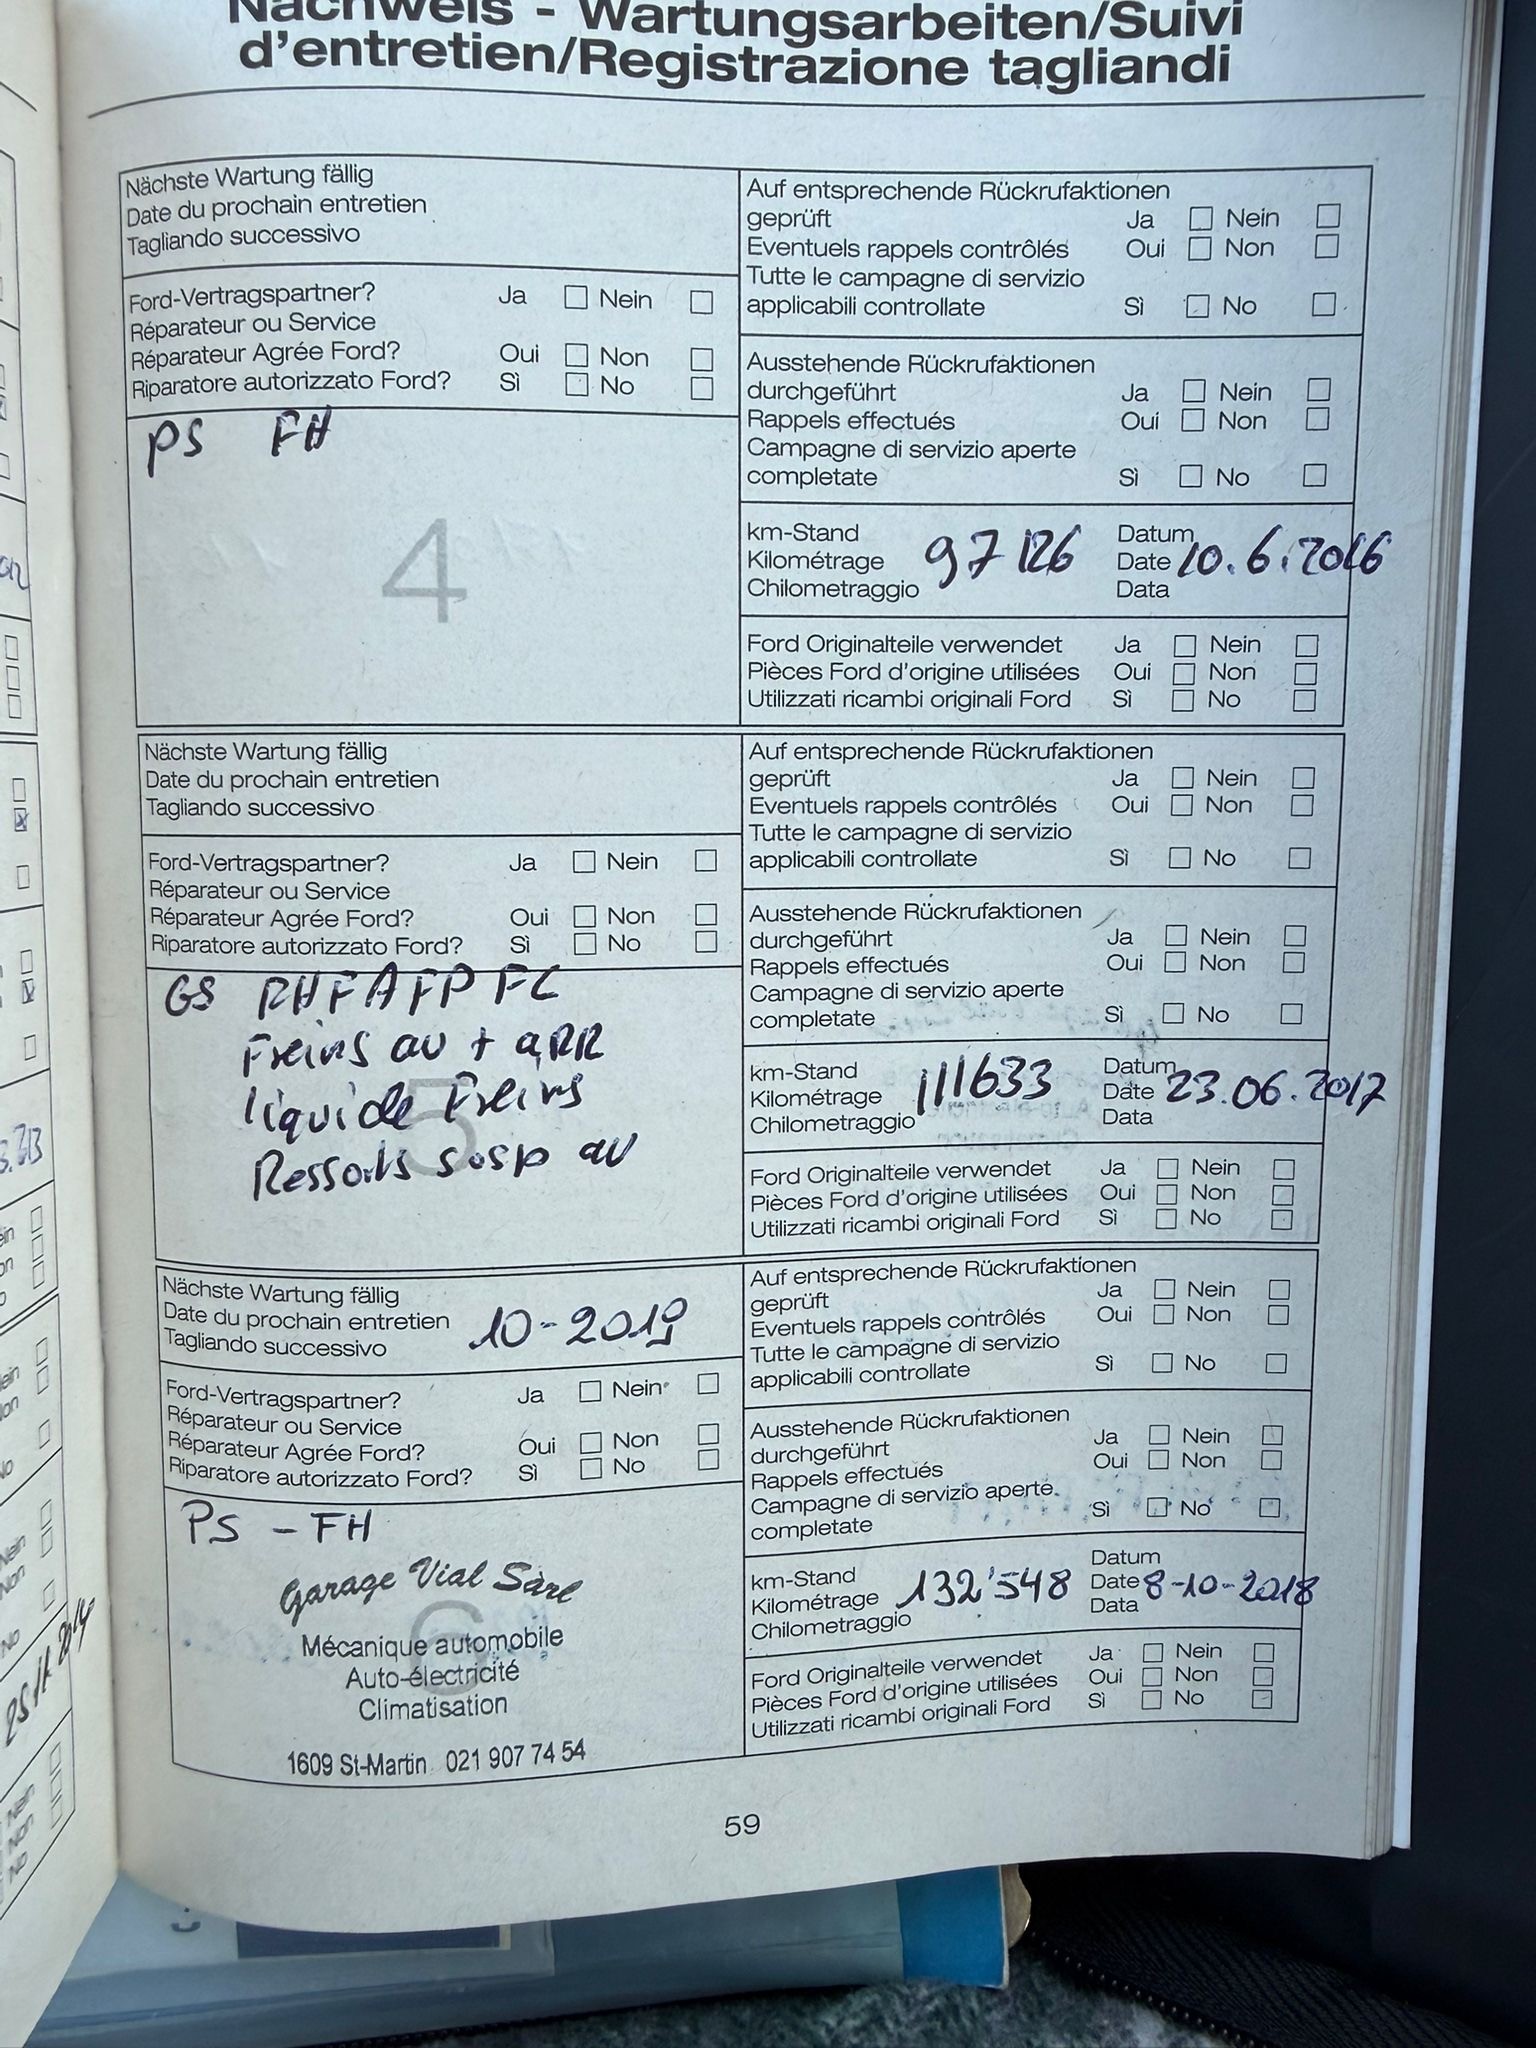 Nachweis - Wartungsarbeiten/Suivi
d'entretien/Registrazione tagliandi
Nächste Wartung fällig
Date du prochain entretien
Tagliando successivo
Ford-Vertragspartner? Ja Nein
Réparateur ou Service
Réparateur Agrée Ford? Oui Non
Riparatore autorizzato Ford? Sì No
PS FH
4
Auf entsprechende Rückrufaktionen
geprüft Ja Nein
Eventuels rappels contrôlés Oui Non
Tutte le campagne di servizio
applicabili controllate Sì No
Ausstehende Rückrufaktionen
durchgeführt Ja Nein
Rappels effectués Oui Non
Campagne di servizio aperte
completate Sì No
km-Stand Datum
Kilométrage 97126 Date 10.6.2016
Chilometraggio Data
Ford Originalteile verwendet Ja Nein
Pièces Ford d'origine utilisées Oui Non
Utilizzati ricambi originali Ford Sì No
Nächste Wartung fällig
Date du prochain entretien
Tagliando successivo
Ford-Vertragspartner? Ja Nein
Réparateur ou Service
Réparateur Agrée Ford? Oui Non
Riparatore autorizzato Ford? Sì No
GS RHFAFPFC
Freins av + aRR
liquide Freins
5
Ressorts susp av
Auf entsprechende Rückrufaktionen
geprüft Ja Nein
Eventuels rappels contrôlés Oui Non
Tutte le campagne di servizio
applicabili controllate Sì No
Ausstehende Rückrufaktionen
durchgeführt Ja Nein
Rappels effectués Oui Non
Campagne di servizio aperte
completate Sì No
km-Stand Datum
Kilométrage 111633 Date 23.06.2017
Chilometraggio Data
Ford Originalteile verwendet Ja Nein
Pièces Ford d'origine utilisées Oui Non
Utilizzati ricambi originali Ford Sì No
Nächste Wartung fällig
Date du prochain entretien 10-2019
Tagliando successivo
Ford-Vertragspartner? Ja Nein
Réparateur ou Service
Réparateur Agrée Ford? Oui Non
Riparatore autorizzato Ford? Sì No
PS - FH
Garage Vial Sàrl
6
Mécanique automobile
Auto-électricité
Climatisation
1609 St-Martin 021 907 74 54
Auf entsprechende Rückrufaktionen
geprüft Ja Nein
Eventuels rappels contrôlés Oui Non
Tutte le campagne di servizio
applicabili controllate Sì No
Ausstehende Rückrufaktionen
durchgeführt Ja Nein
Rappels effectués Oui Non
Campagne di servizio aperte
completate Sì No
km-Stand Datum
Kilométrage 132'548 Date 8-10-2018
Chilometraggio Data
Ford Originalteile verwendet Ja Nein
Pièces Ford d'origine utilisées Oui Non
Utilizzati ricambi originali Ford Sì No
59